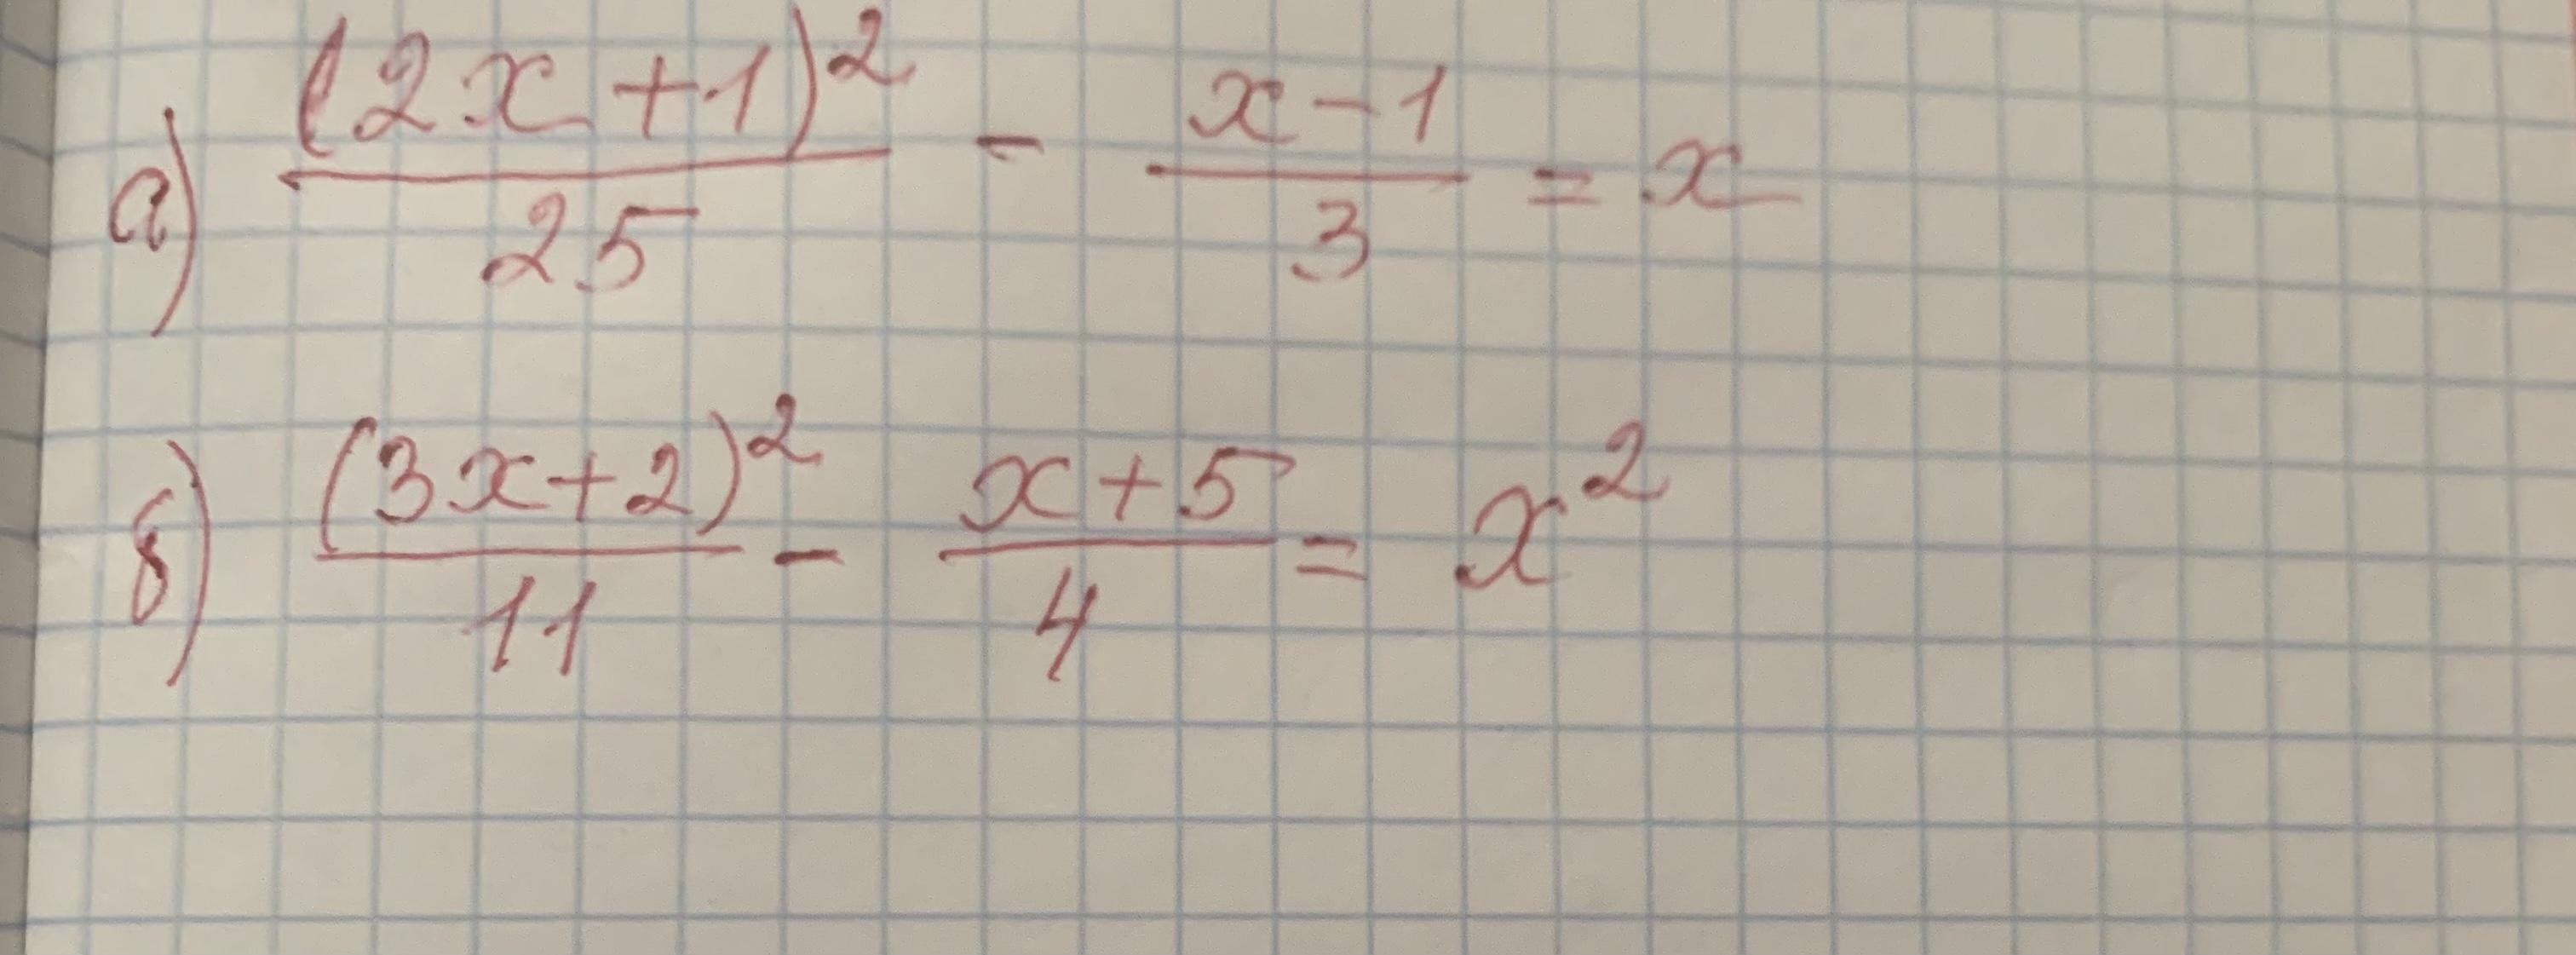 а) (2x+1)²/25 - (x-1)/3 = x
б) (3x+2)²/11 - (x+5)/4 = x²